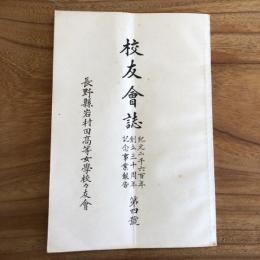 校友會誌
紀元二千六百年
創立三十周年
記念事業報告
第四號
長野縣岩村田高等女學校々友會